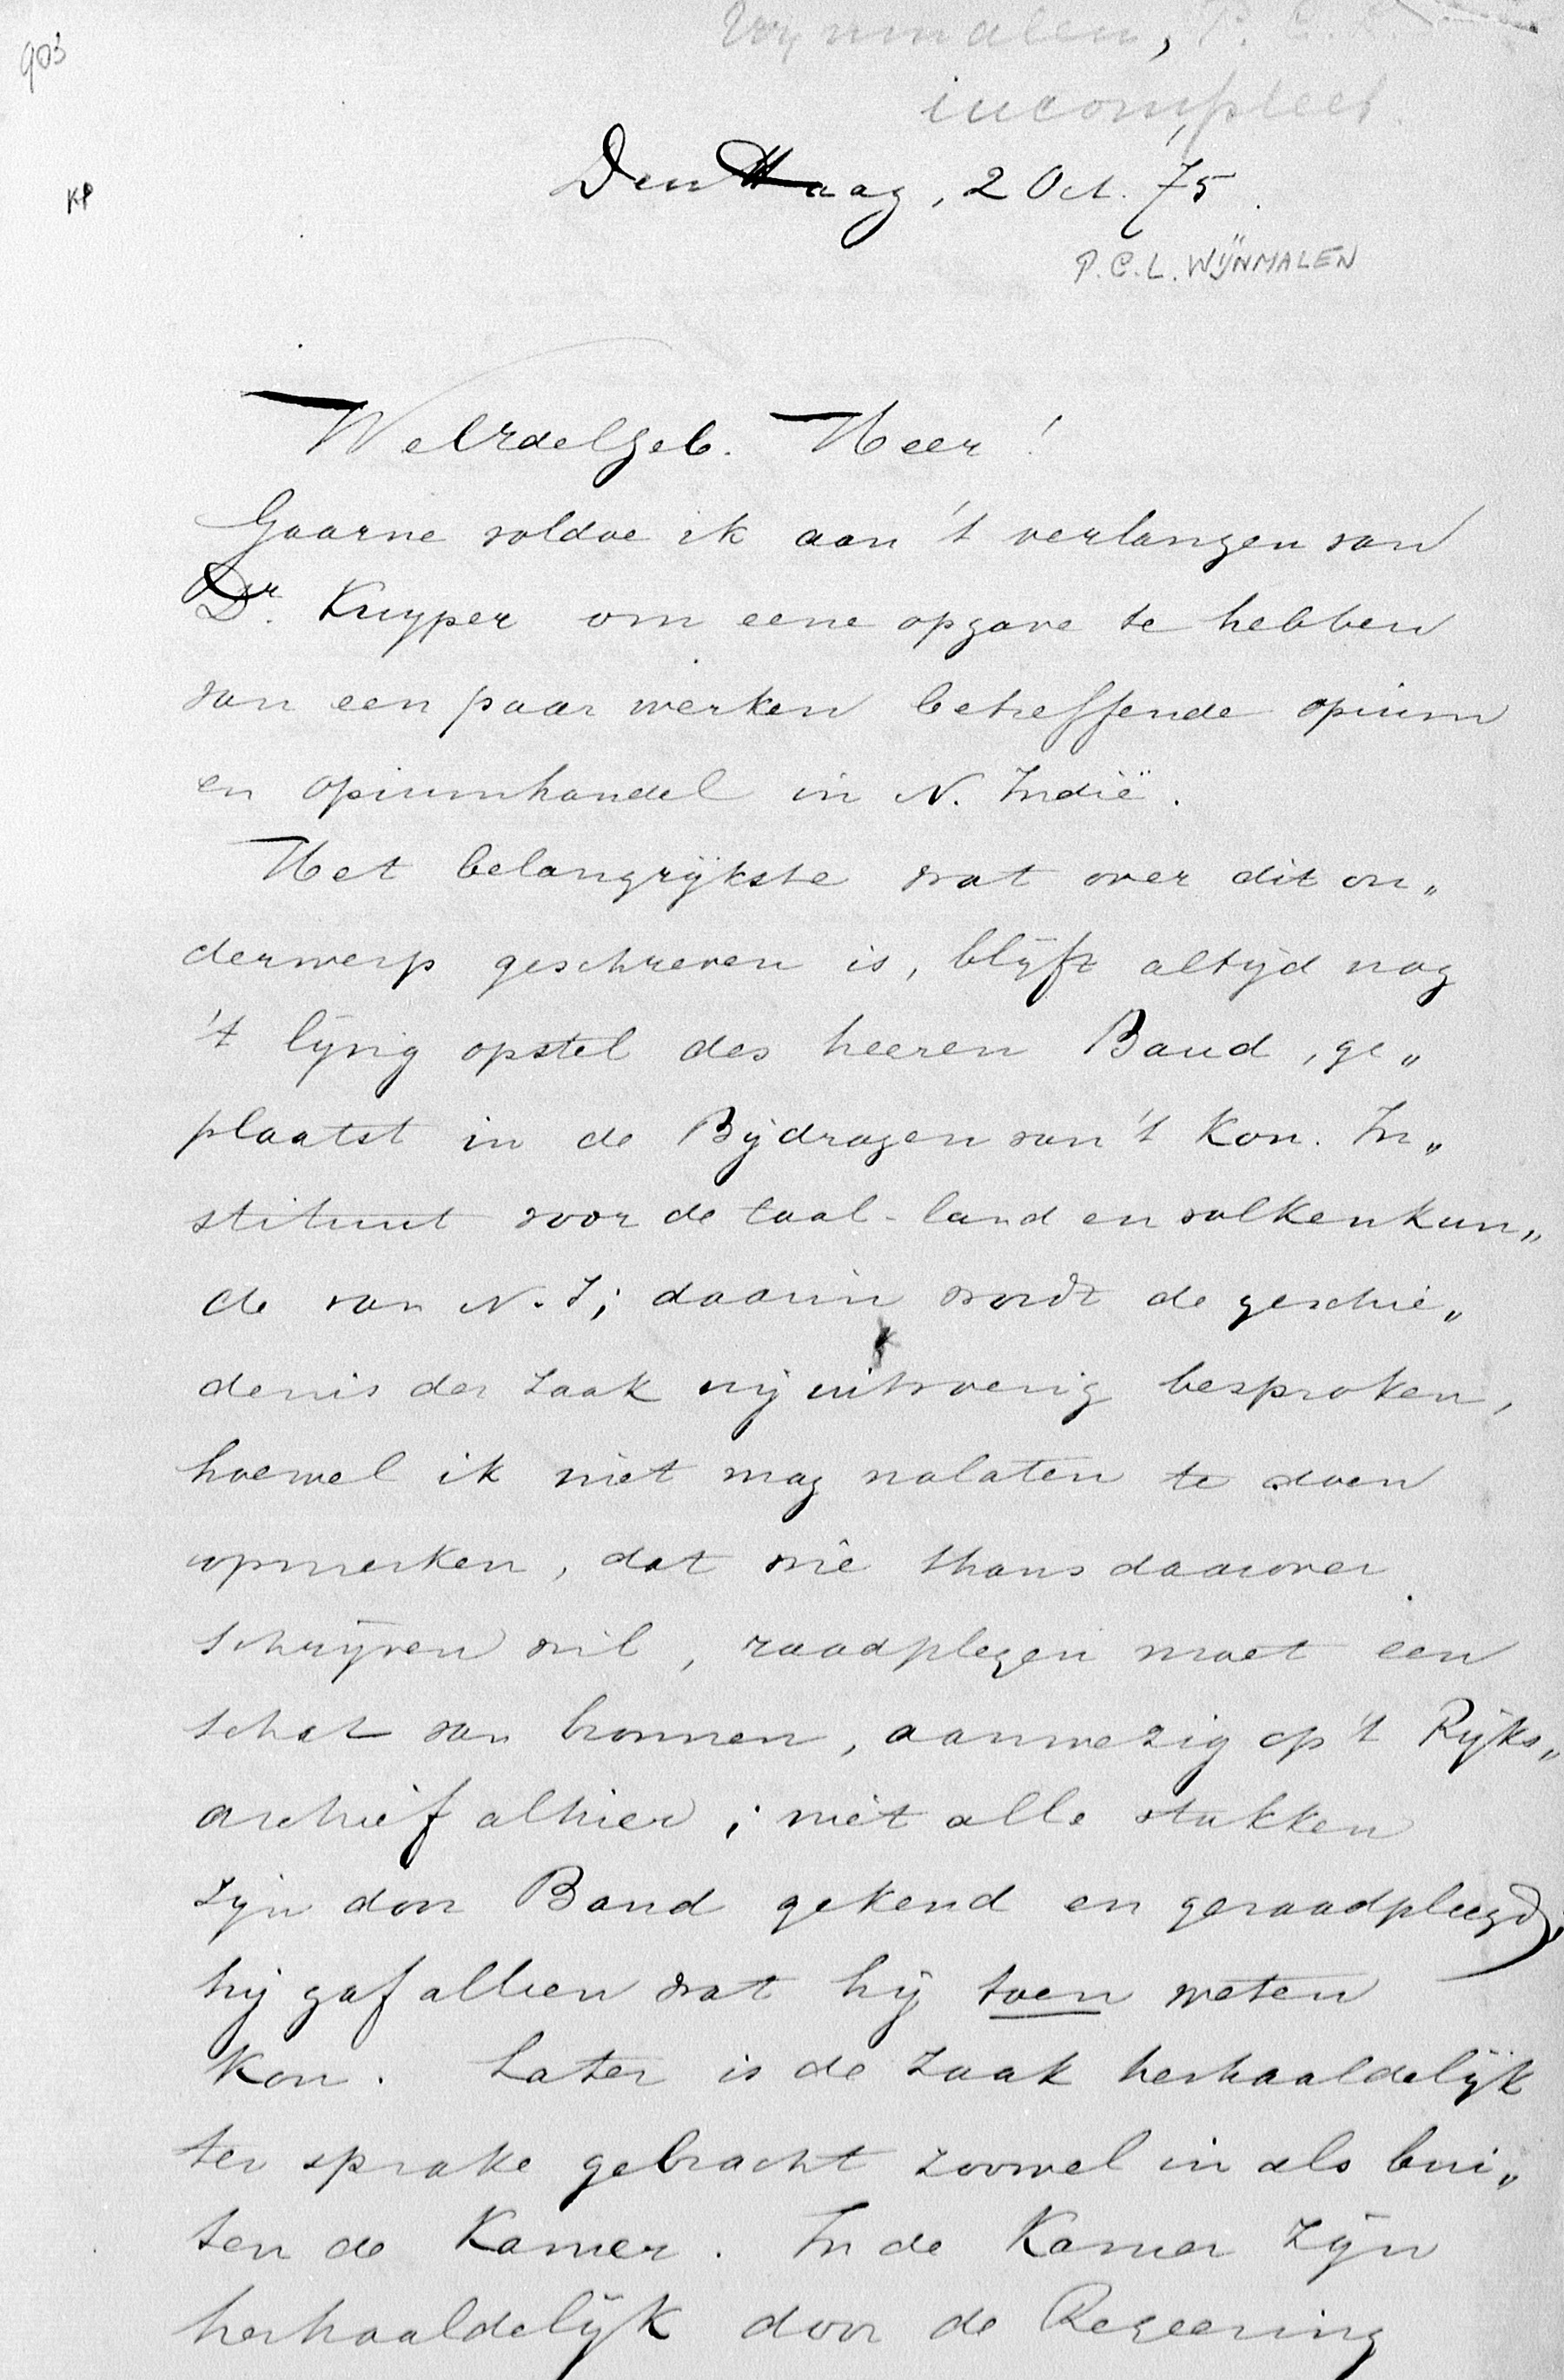 903
Wijnmalen, P. C. L.
incompleet.
KP
Den Haag, 2 Oct. 75.
P.C.L. WIJNMALEN
WelEdelGeb. Heer!
Gaarne voldoe ik aan 't verlangen van
Dr. Kuyper om eene opgave te hebben
van een paar werken betreffende opium
en opiumhandel in N. Indië.
Het belangrijkste wat over dit on„
derwerp geschreven is, blijft altijd nog
't lijvig opstel des heeren Baud, ge„
plaatst in de Bijdragen van 't Kon. In„
stituut voor de taal- land en volkenkun„
de van N. I; daarin wordt de geschie„
denis der zaak vrij uitvoerig besproken,
hoewel ik niet mag nalaten te doen
opmerken, dat wie thans daarover
schrijven wil, raadplegen moet een
schat van bronnen, aanwezig op 't Rijks„
archief alhier; niet alle stukken
zijn door Baud gekend en geraadpleegd;
hij gaf alleen wat hij toen weten
kon. Later is de zaak herhaaldelijk
ter sprake gebracht zoowel in als bui„
ten de Kamer. In de Kamer zijn
herhaaldelijk door de Regeering